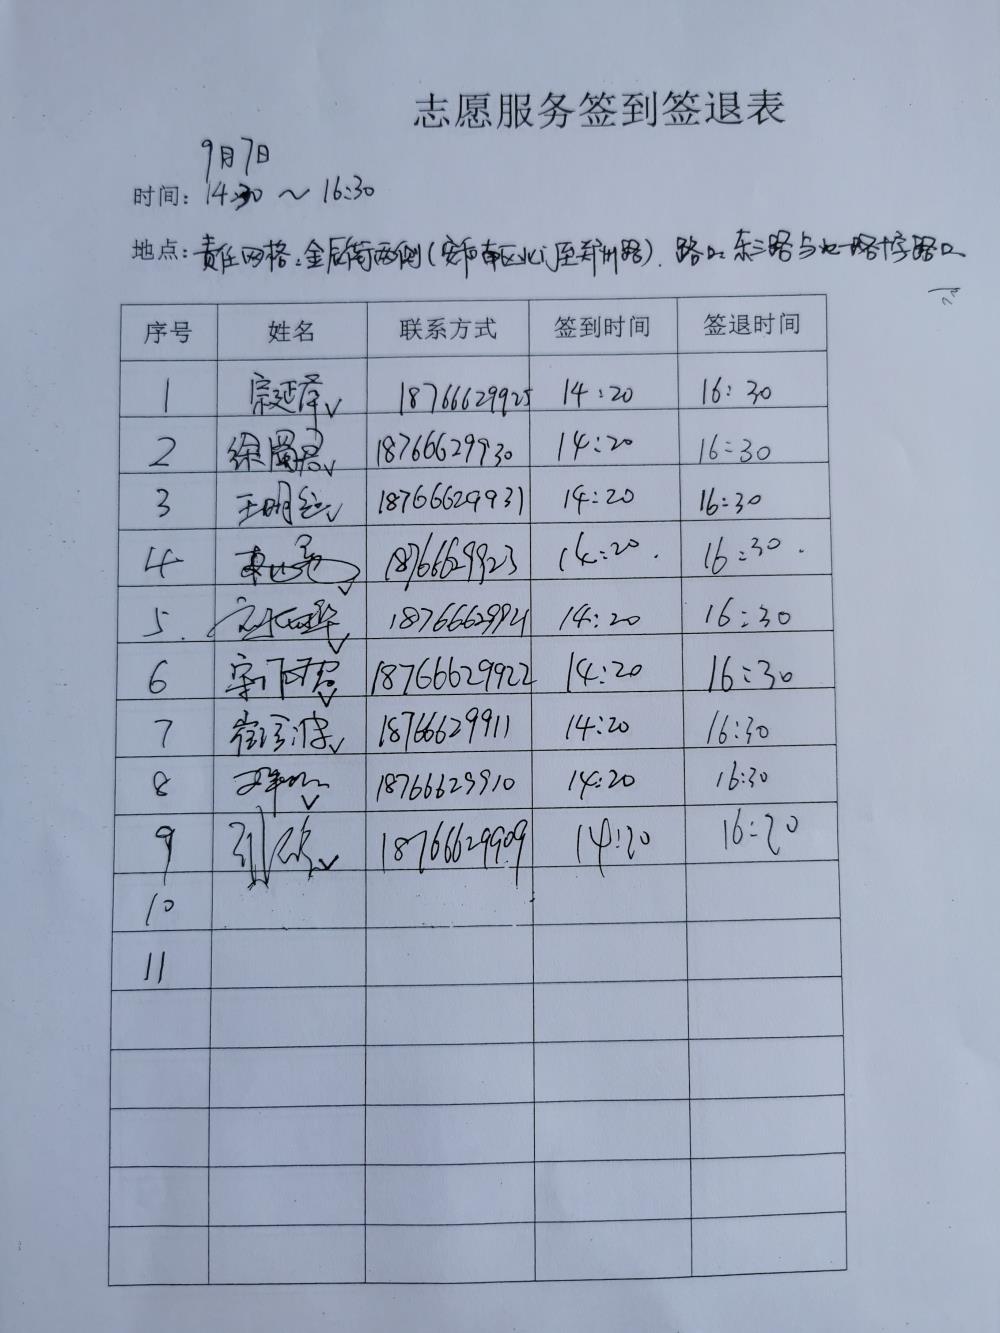 志愿服务签到签退表
9月7日
时间: 14:30 ~ 16:30
地点: 责任网格: 金辰街两侧(安和南区北门至郑州路). 路口: 东三路与 路十字路口
序号 姓名 联系方式 签到时间 签退时间
1 宗延泽 18766629925 14:20 16:30
2 徐蜀君 18766629930 14:20 16:30
3 王明 18766629931 14:20 16:30
4 18766629923 14:20 16:30
5 18766629921 14:20 16:30
6 18766629922 14:20 16:30
7 18766629911 14:20 16:30
8 18766629910 14:20 16:30
9 18766629909 14:20 16:20
10
11